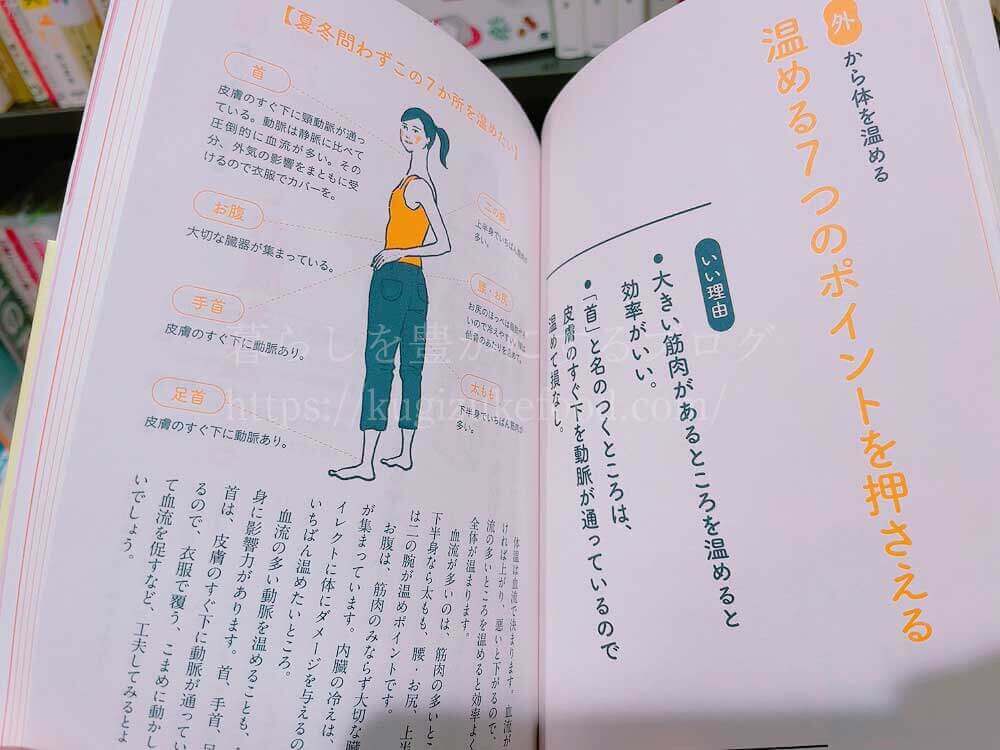 外から体を温める
温める7つのポイントを押さえる
いい理由
●大きい筋肉があるところを温めると
効率がいい。
●「首」と名のつくところは、
皮膚のすぐ下を動脈が通っているので
温めて損なし。
【夏冬問わずこの7か所を温めたい】
首
皮膚のすぐ下に頸動脈が通っ
ている。動脈は静脈に比べて
圧倒的に血流が多い。その
分、外気の影響をまともに受
けるので衣服でカバーを。
お腹
大切な臓器が集まっている。
手首
皮膚のすぐ下に動脈あり。
足首
皮膚のすぐ下に動脈あり。
二の腕
上半身でいちばん筋肉が
多い。
腰・お尻
お尻のほっぺは脂肪が
いので冷えやすい。
仙骨のあたりを温めて。
太もも
下半身でいちばん筋肉が
多い。
体温は血流で決まります。血流が
ければ上がり、悪いと下がるので、
流の多いところを温めると効率よく
全体が温まります。
血流が多いのは、筋肉の多いとこ
下半身なら太もも、腰・お尻、上半
は二の腕が温めポイントです。
お腹は、筋肉のみならず大切な臓
が集まっています。内臓の冷えは、
イレクトに体にダメージを与えるの
いちばん温めたいところ。
血流の多い動脈を温めることも、
身に影響力があります。首、手首、足
首は、皮膚のすぐ下に動脈が通ってい
るので、衣服で覆う、こまめに動かし
て血流を促すなど、工夫してみるとよ
いでしょう。
暮らしを豊かにするブログ